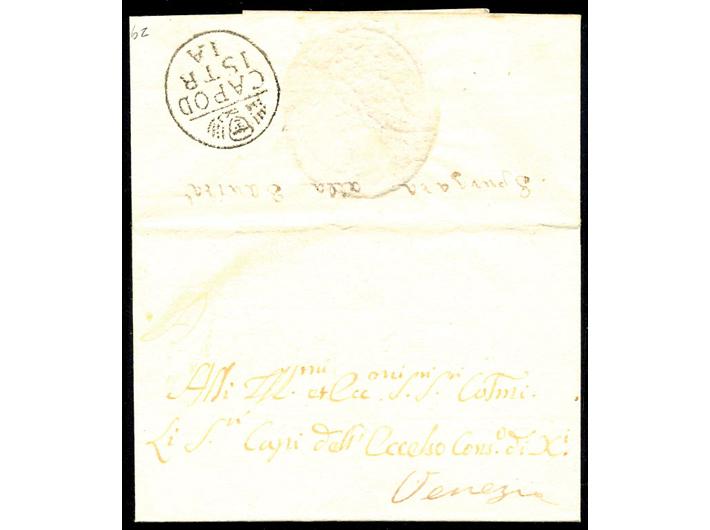 29
CAPOD
ISTR
IA
Spurgata alla Sanità
Alli Ill.mi et Ecc.mi S.S.ri Colmi.
Li S.ri Capi dell'Eccelso Cons.o di X.i
Venezia